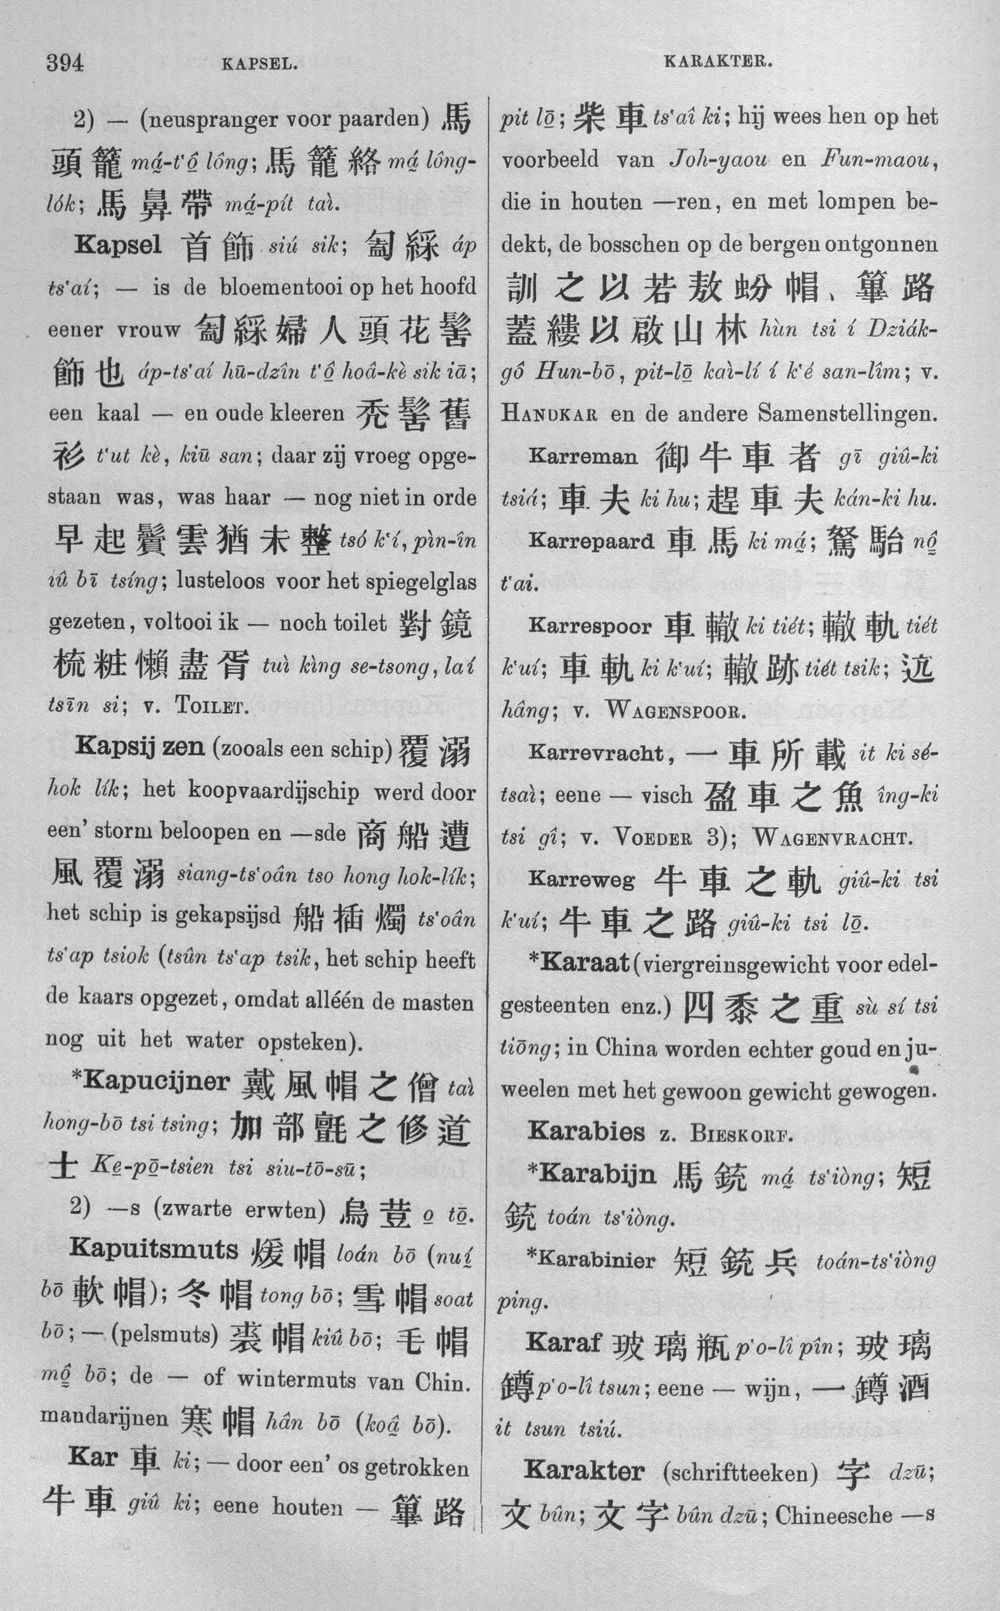 394
KAPSEL.
KARAKTER.
2) — (neuspranger voor paarden) 馬
頭籠 má̤-t‘ô̤ lông; 馬籠絡 má̤ lông-
lók; 馬鼻帶 má̤-pít taì.
Kapsel 首飾 siú sik; 匎綵 áp
ts‘aí; — is de bloementooi op het hoofd
eener vrouw 匎綵婦人頭花髻
飾也 áp-ts‘aí hū-dzîn t‘ô̤ hoâ-kè sik iā;
een kaal — en oude kleeren 禿髻舊
衫 t‘ut kè, kiū san; daar zij vroeg opge-
staan was, was haar — nog niet in orde
早起鬢雲猶未整 tsó k‘í, pìn-în
iû bī tsíng; lusteloos voor het spiegelglas
gezeten, voltooi ik — noch toilet 對鏡
梳粧懶盡胥 tuì kìng se-tsong, laí
tsīn si; v. TOILET.
Kapsijzen (zooals een schip) 覆溺
hok lík; het koopvaardijschip werd door
een’ storm beloopen en —sde 商船遭
風覆溺 siang-ts‘oân tso hong hok-lík;
het schip is gekapsijsd 船插燭 ts‘oân
ts‘ap tsiok (tsûn ts‘ap tsik, het schip heeft
de kaars opgezet, omdat alléén de masten
nog uit het water opsteken).
*Kapucijner 戴風帽之僧 taì
hong-bō tsi tsing; 加部氈之修道
士 Ke̤-pō̤-tsien tsi siu-tō-sū;
2) —s (zwarte erwten) 烏荳 o̤ tō̤.
Kapuitsmuts 煖帽 loán bō (nuí̤
bō 軟帽); 冬帽 tong bō; 雪帽 soat
bō; — (pelsmuts) 裘帽 kiû bō; 毛帽
mô̤ bō; de — of wintermuts van Chin.
mandarijnen 寒帽 hân bō (koâ̤ bō).
Kar 車 ki; — door een’ os getrokken
牛車 giû ki; eene houten — 篳路
pit lō̤; 柴車 ts‘aî ki; hij wees hen op het
voorbeeld van Joh-yaou en Fun-maou,
die in houten —ren, en met lompen be-
dekt, de bosschen op de bergen ontgonnen
訓之以若敖蚡帽、篳路
藍縷以啟山林 hùn tsi í Dziák-
gô Hun-bō, pit-lō̤ kaì-lí í k‘é san-lîm; v.
HANDKAR en de andere Samenstellingen.
Karreman 御牛車者 gī giû-ki
tsiá; 車夫 ki hu; 趕車夫 kán-ki hu.
Karrepaard 車馬 ki má̤; 駑駘 nô̤
t‘ai.
Karrespoor 車轍 ki tiét; 轍軌 tiét
k‘uí; 車軌 ki k‘uí; 轍跡 tiét tsik; 迒
hâng; v. WAGENSPOOR.
Karrevracht, 一車所載 it ki sé-
tsaì; eene — visch 盈車之魚 îng-ki
tsi gî; v. VOEDER 3); WAGENVRACHT.
Karreweg 牛車之軌 giû-ki tsi
k‘uí; 牛車之路 giû-ki tsi lō̤.
*Karaat (viergreinsgewicht voor edel-
gesteenten enz.) 四黍之重 sù sí tsi
tiōng; in China worden echter goud en ju-
weelen met het gewoon gewicht gewogen.
Karabies z. BIESKORF.
*Karabijn 馬銃 má̤ ts‘iòng; 短
銃 toán ts‘iòng.
*Karabinier 短銃兵 toán-ts‘iòng
ping.
Karaf 玻璃瓶 p‘o-lî pîn; 玻璃
鐏 p‘o-lî tsun; eene — wijn, 一鐏酒
it tsun tsiú.
Karakter (schriftteeken) 字 dzū;
文 bûn; 文字 bûn dzū; Chineesche —s